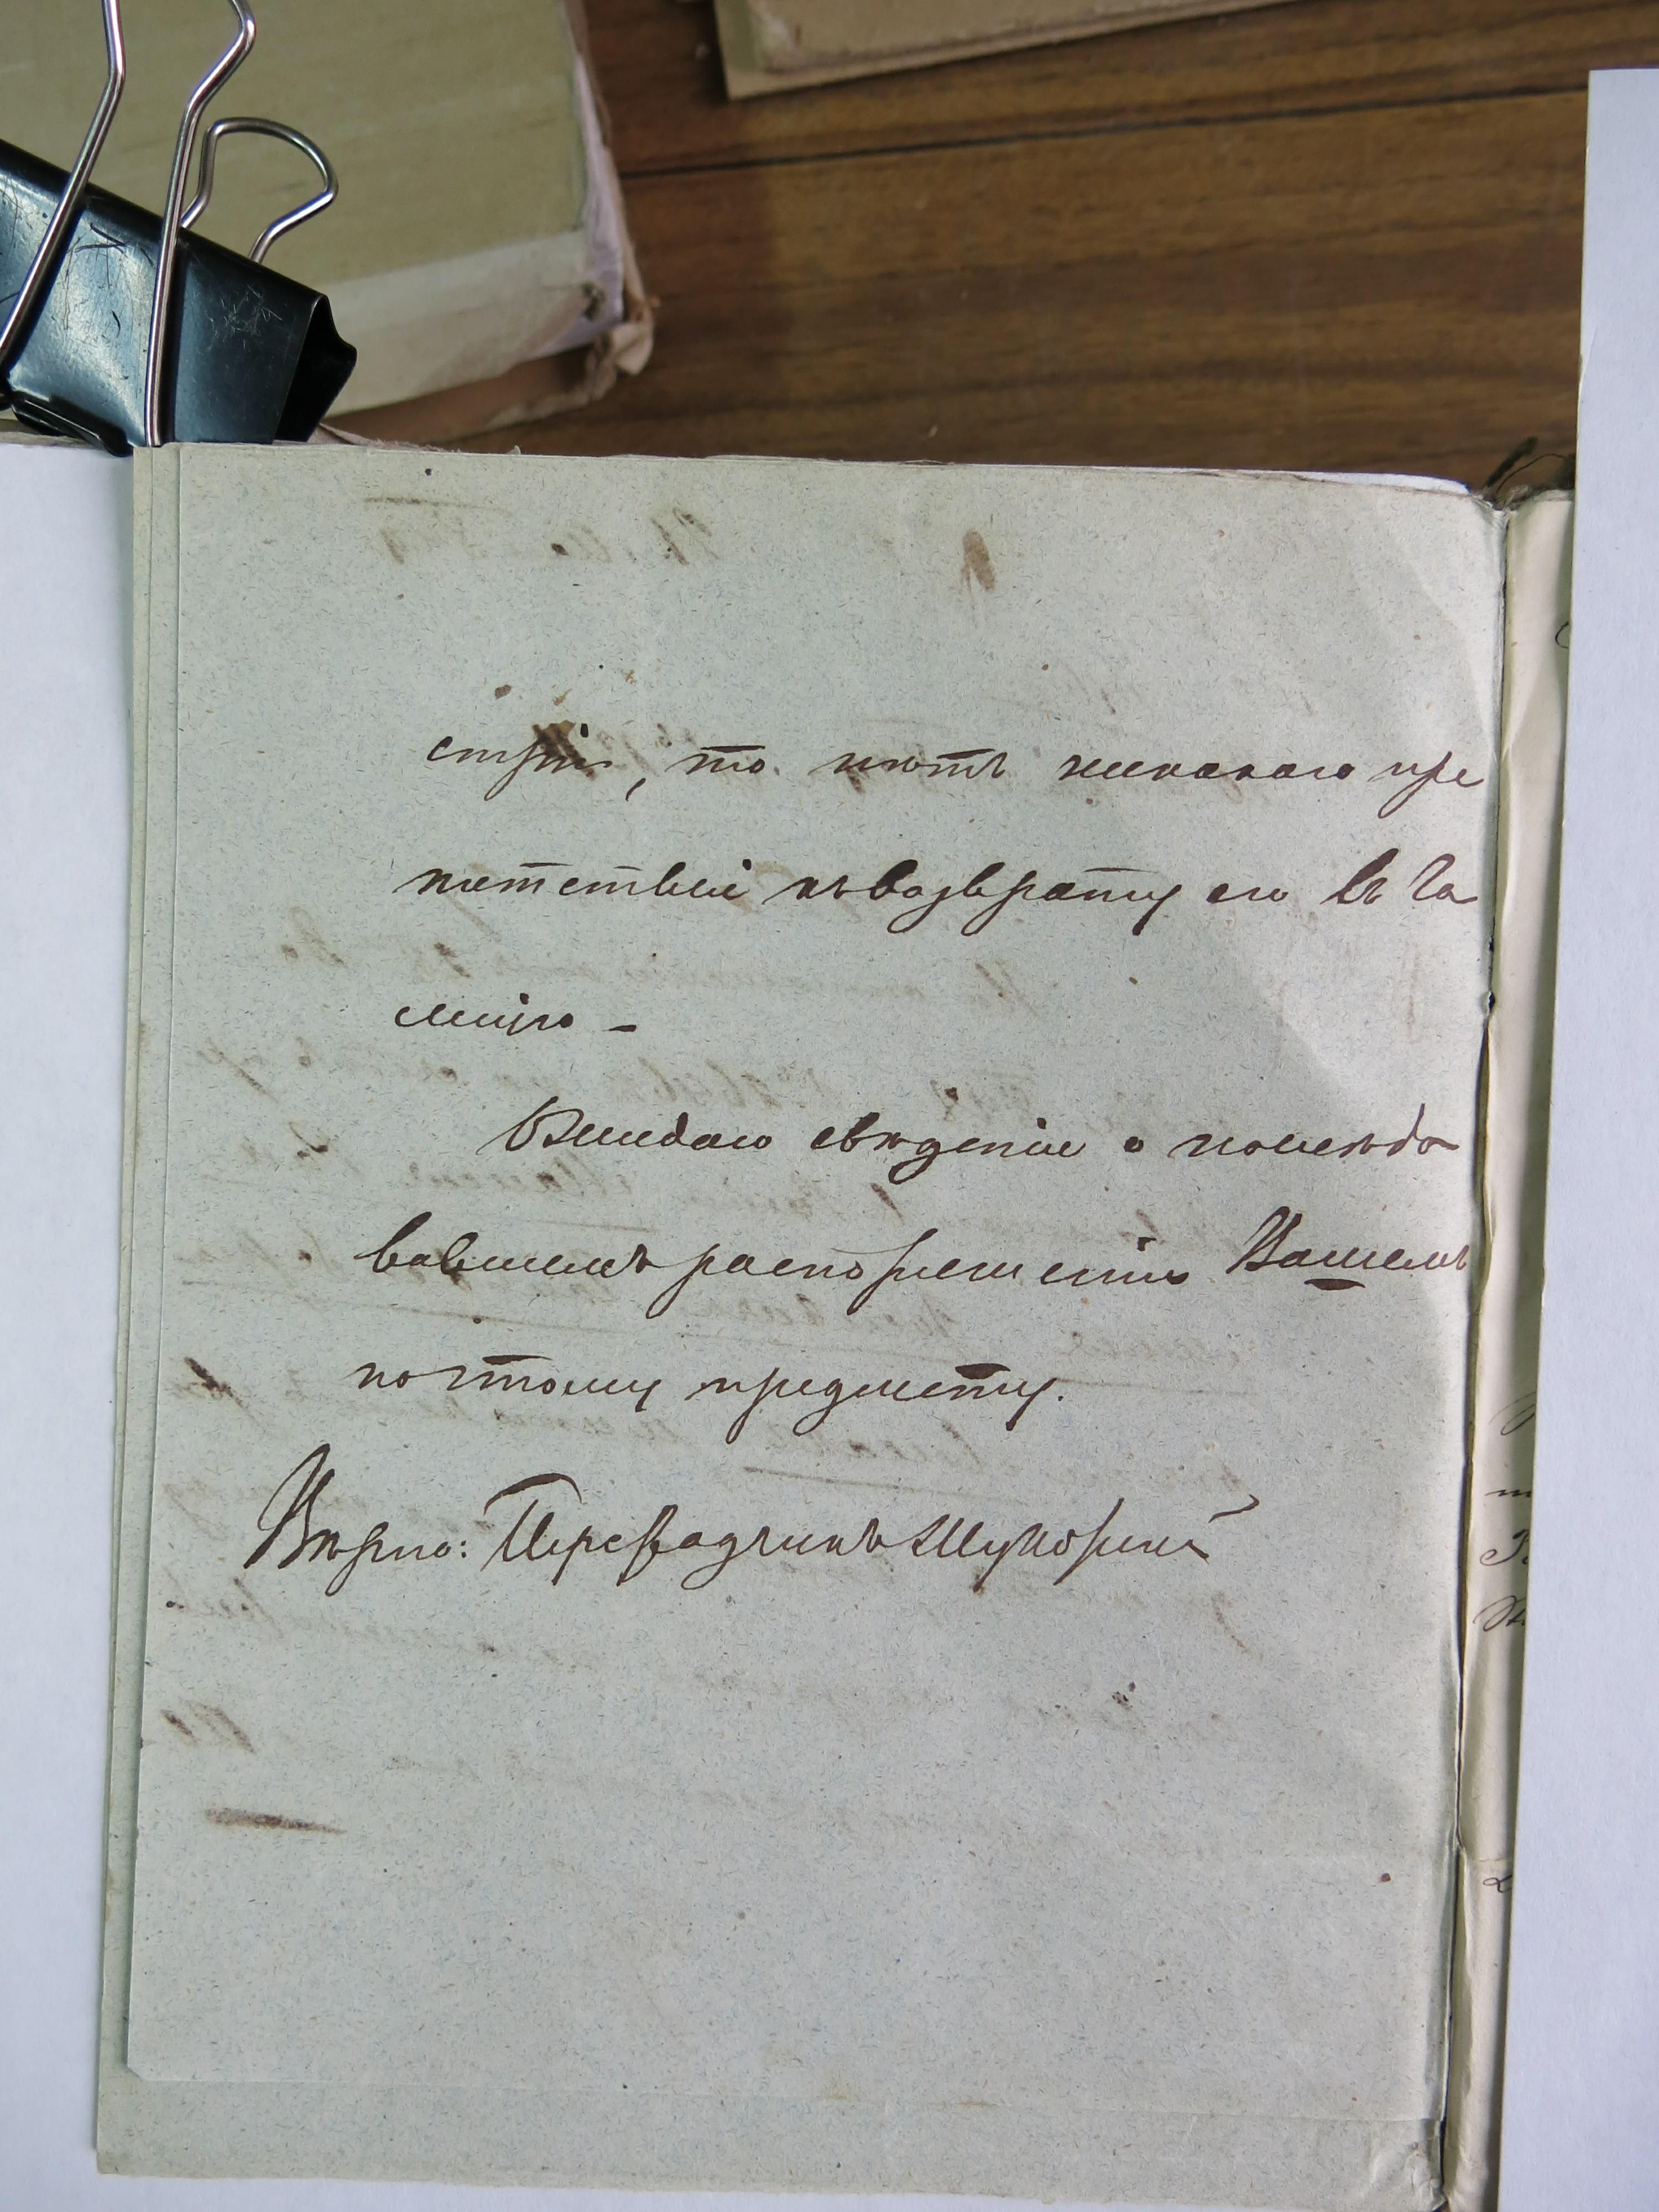 стрiи, то нѣтъ никакого пре
пятствiй къ возврату его въ Га
лицiю –
Ожидаю свѣденiе о послѣдо
вавшемъ распоряженiи Вашемъ
по этому предмету.
Вѣрно: Переводчикъ